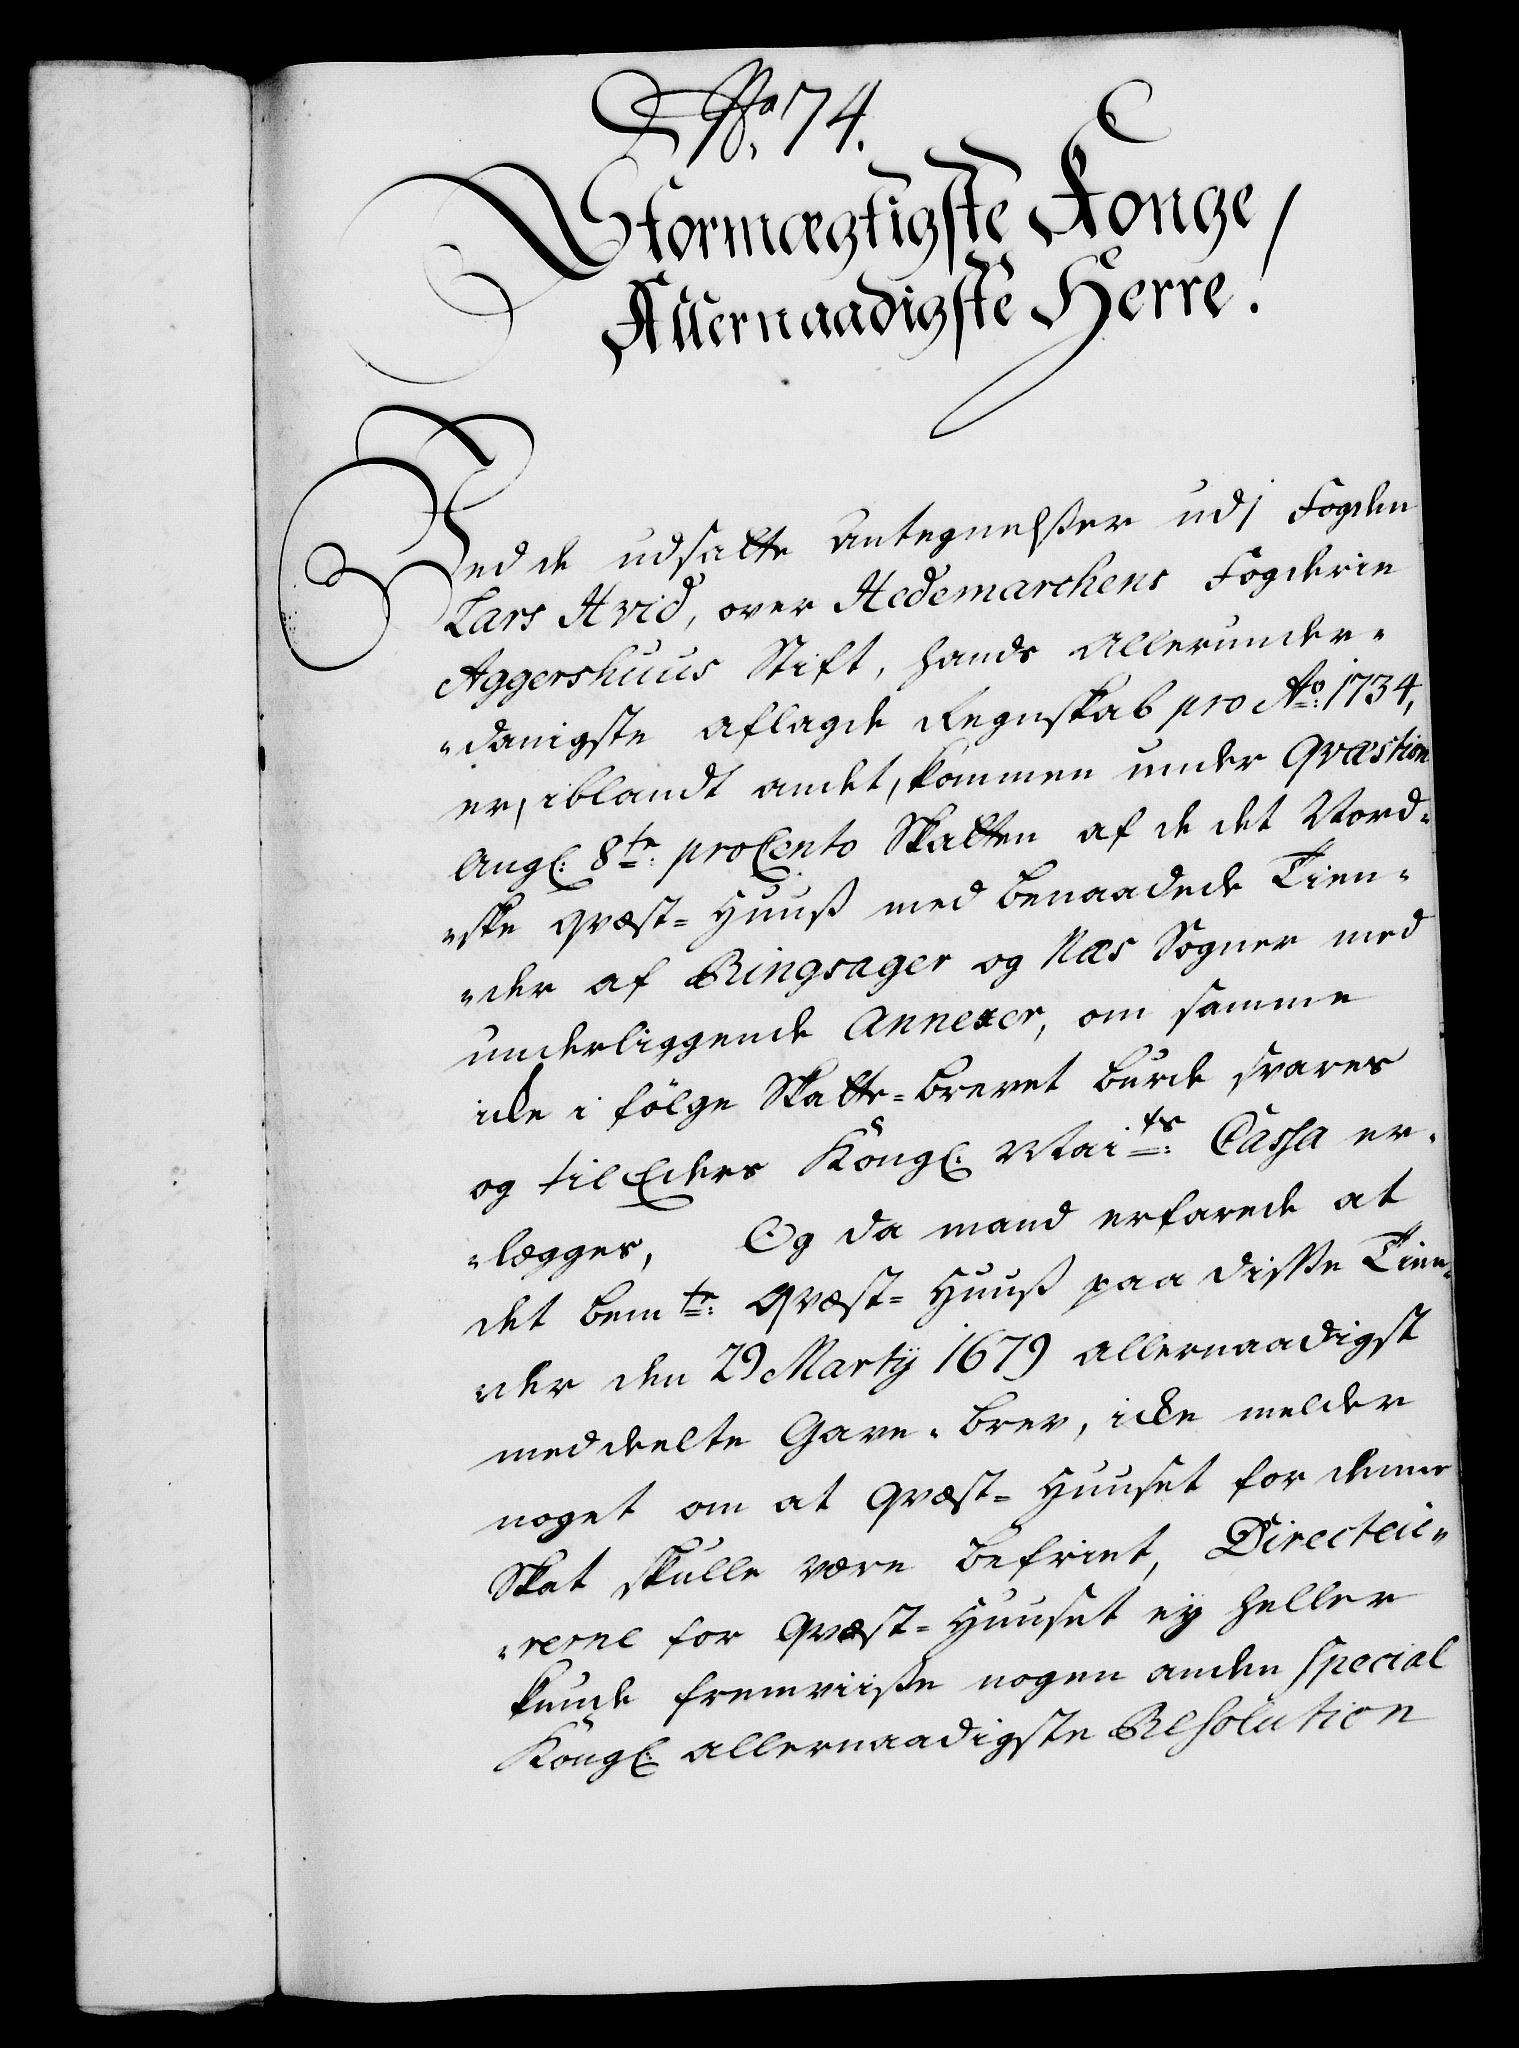 No. 74.
Stormægtigste Konge/
Allernaadigste Herre!
Ved de udsatte Antegnelßer udj Fogden
Lars Hvid, over Hedemarchens Fogderie
Aggershuus Stift, hands Allerunder-
-danigste aflagde Regnskab pro Ao: 1734,
er, iblandt andet, kommen under Qvæstion
Angl: 8te: proCento Skatten af de det Nord-
-ske Qvæst-Huuß med benaadede Tien-
-der af Ringsager og Næs Sogner med
underliggende Annexer, om samme
icke i følge Skatte-brevet burde svares
og til Eders Kongl: Maits: Cassa er-
-lægges, Og da mand erfarede at
det bemte: Qvæst-Huuß paa disse Tien-
-der den 29 Martij 1679 allernaadigst
meddeelte Gave-brev, icke melder
noget om at Qvæst-Huuset for denne
Skat skulle være befriet, Directeu-
-rerne for Qvæst-Huuset ey heller
kunde fremviiße nogen anden special
Kongl: allernaadigste Resolution